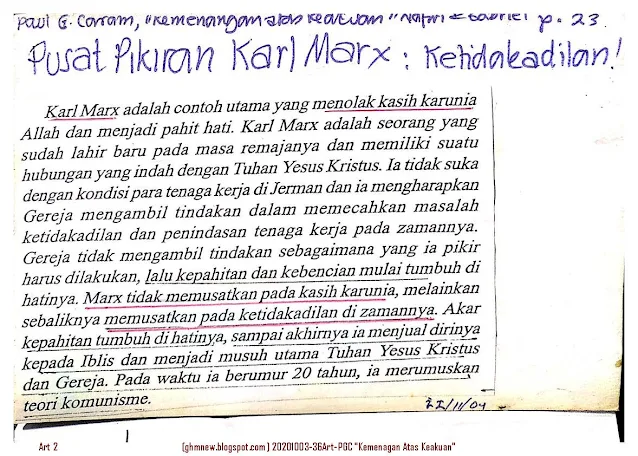 Paul G. Caram, "Kemenangan atas keakuan" Nafiri Gabriel p. 23
Pusat Pikiran Karl Marx : Ketidakadilan!
Karl Marx adalah contoh utama yang menolak kasih karunia
Allah dan menjadi pahit hati. Karl Marx adalah seorang yang
sudah lahir baru pada masa remajanya dan memiliki suatu
hubungan yang indah dengan Tuhan Yesus Kristus. Ia tidak suka
dengan kondisi para tenaga kerja di Jerman dan ia mengharapkan
Gereja mengambil tindakan dalam memecahkan masalah
ketidakadilan dan penindasan tenaga kerja pada zamannya.
Gereja tidak mengambil tindakan sebagaimana yang ia pikir
harus dilakukan, lalu kepahitan dan kebencian mulai tumbuh di
hatinya. Marx tidak memusatkan pada kasih karunia, melainkan
sebaliknya memusatkan pada ketidakadilan di zamannya. Akar
kepahitan tumbuh di hatinya, sampai akhirnya ia menjual dirinya
kepada Iblis dan menjadi musuh utama Tuhan Yesus Kristus
dan Gereja. Pada waktu ia berumur 20 tahun, ia merumuskan
teori komunisme.
22/11/04
Art 2
(ghmnew.blogspot.com) 20201003-36Art-PGC "Kemenagan Atas Keakuan"